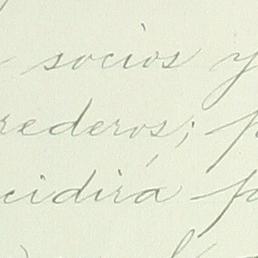 socios y
rederos; p
cidirá p